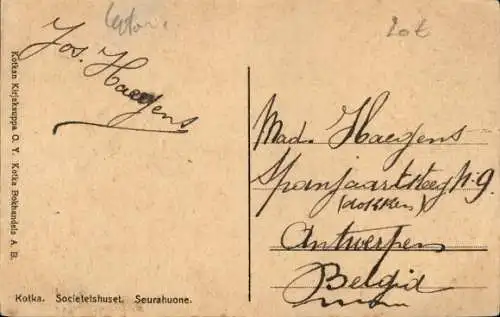 20t
Jos. Haegens
Mad. Haegens
Spanjaartsteeg N. 9
(dokken)
Antwerpen
België
Kotkan Kirjakauppa O. Y. Kotka Bokhandels A. B.
Kotka. Societetshuset. Seurahuone.